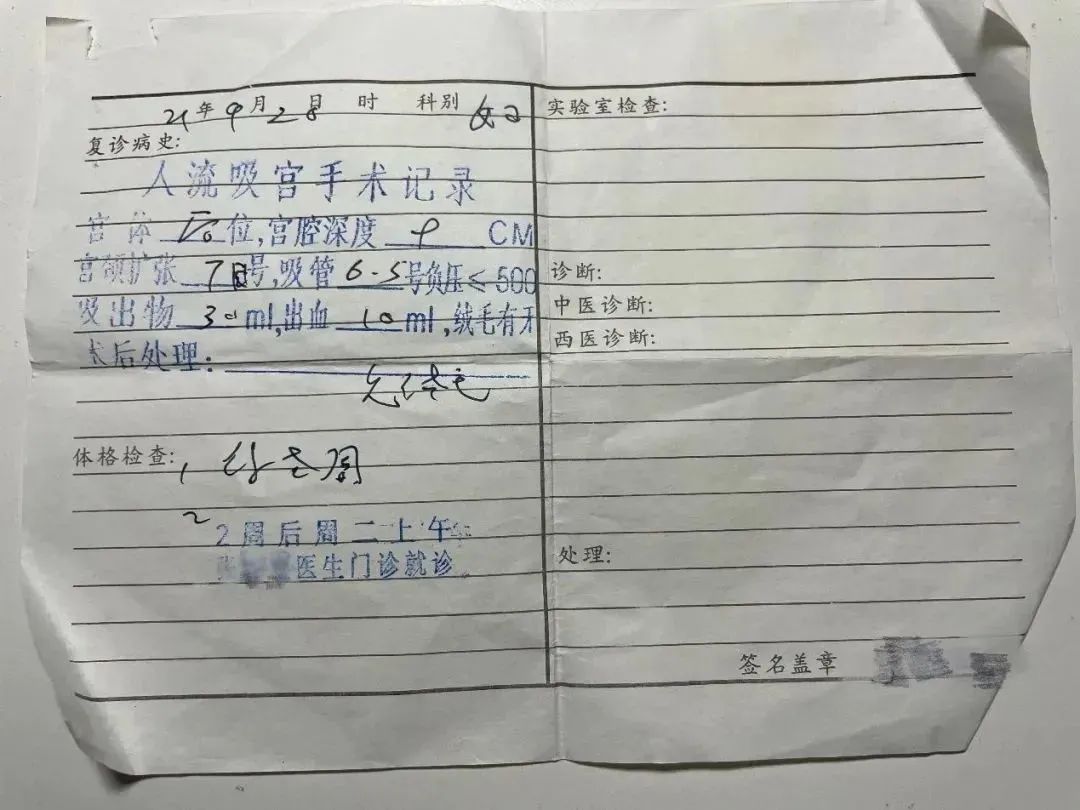 21年9月28日 时 科别
复诊病史:
人流吸宫手术记录
宫体 后 位,宫腔深度 9 CM
宫颈扩张 7 号,吸管 6.5 号负压≤500
吸出物 30 ml,出血 10 ml,绒毛有无
术后处理:
体格检查: 1,
2
2周后周二上午
医生门诊就诊
实验室检查:
诊断:
中医诊断:
西医诊断:
处理:
签名盖章